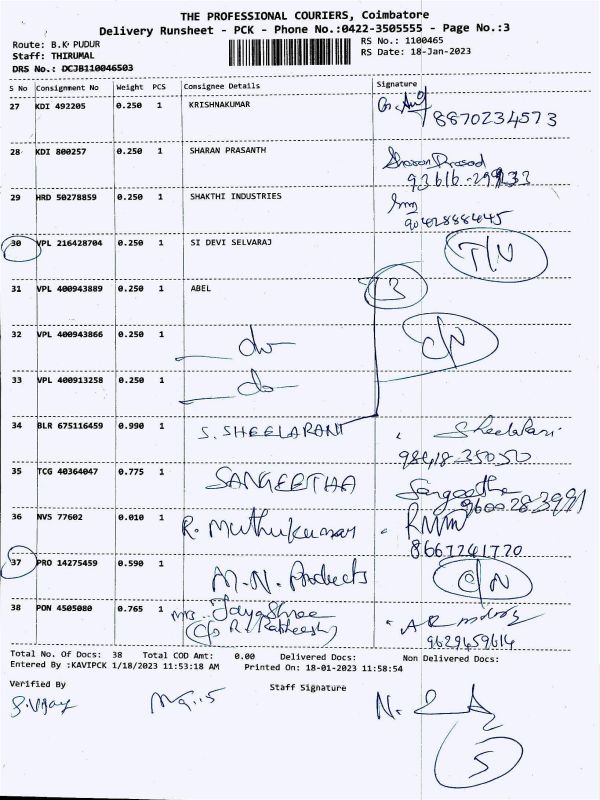 THE PROFESSIONAL COURIERS, Coimbatore
Delivery Runsheet - PCK - Phone No.:0422-3505555 - Page No.:3
Route: B.K PUDUR RS No.: 1100465
Staff: THIRUMAL RS Date: 18-Jan-2023
DRS No.: DCJB110046503
S No Consignment No Weight PCS Consignee Details Signature
27 KDI 492205 0.250 1 KRISHNAKUMAR
8870234573
28 KDI 800257 0.250 1 SHARAN PRASANTH Sharan Prasad
29 HRD 50278859 0.250 1 SHAKTHI INDUSTRIES
30 VPL 216428704 0.250 1 SI DEVI SELVARAJ
31 VPL 400943889 0.250 1 ABEL 3
32 VPL 400943866 0.250 1 C/N
33 VPL 400913258 0.250 1
34 BLR 675116459 0.990 1 S. SHEELARANI Sheelarani
35 TCG 40364047 0.775 1 SANGEETHA Sangeetha
36 NVS 77602 0.010 1 R. Muthukumar
8667241720
37 PRO 14275459 0.590 1 M.N. Products C/N
38 PON 4505080 0.765 1 Mrs. Jayashree
C/o
9629459614
Total No. Of Docs: 38 Total COD Amt: 0.00 Delivered Docs: Non Delivered Docs:
Entered By :KAVIPCK 1/18/2023 11:53:18 AM Printed On: 18-01-2023 11:58:54
Verified By Staff Signature
5